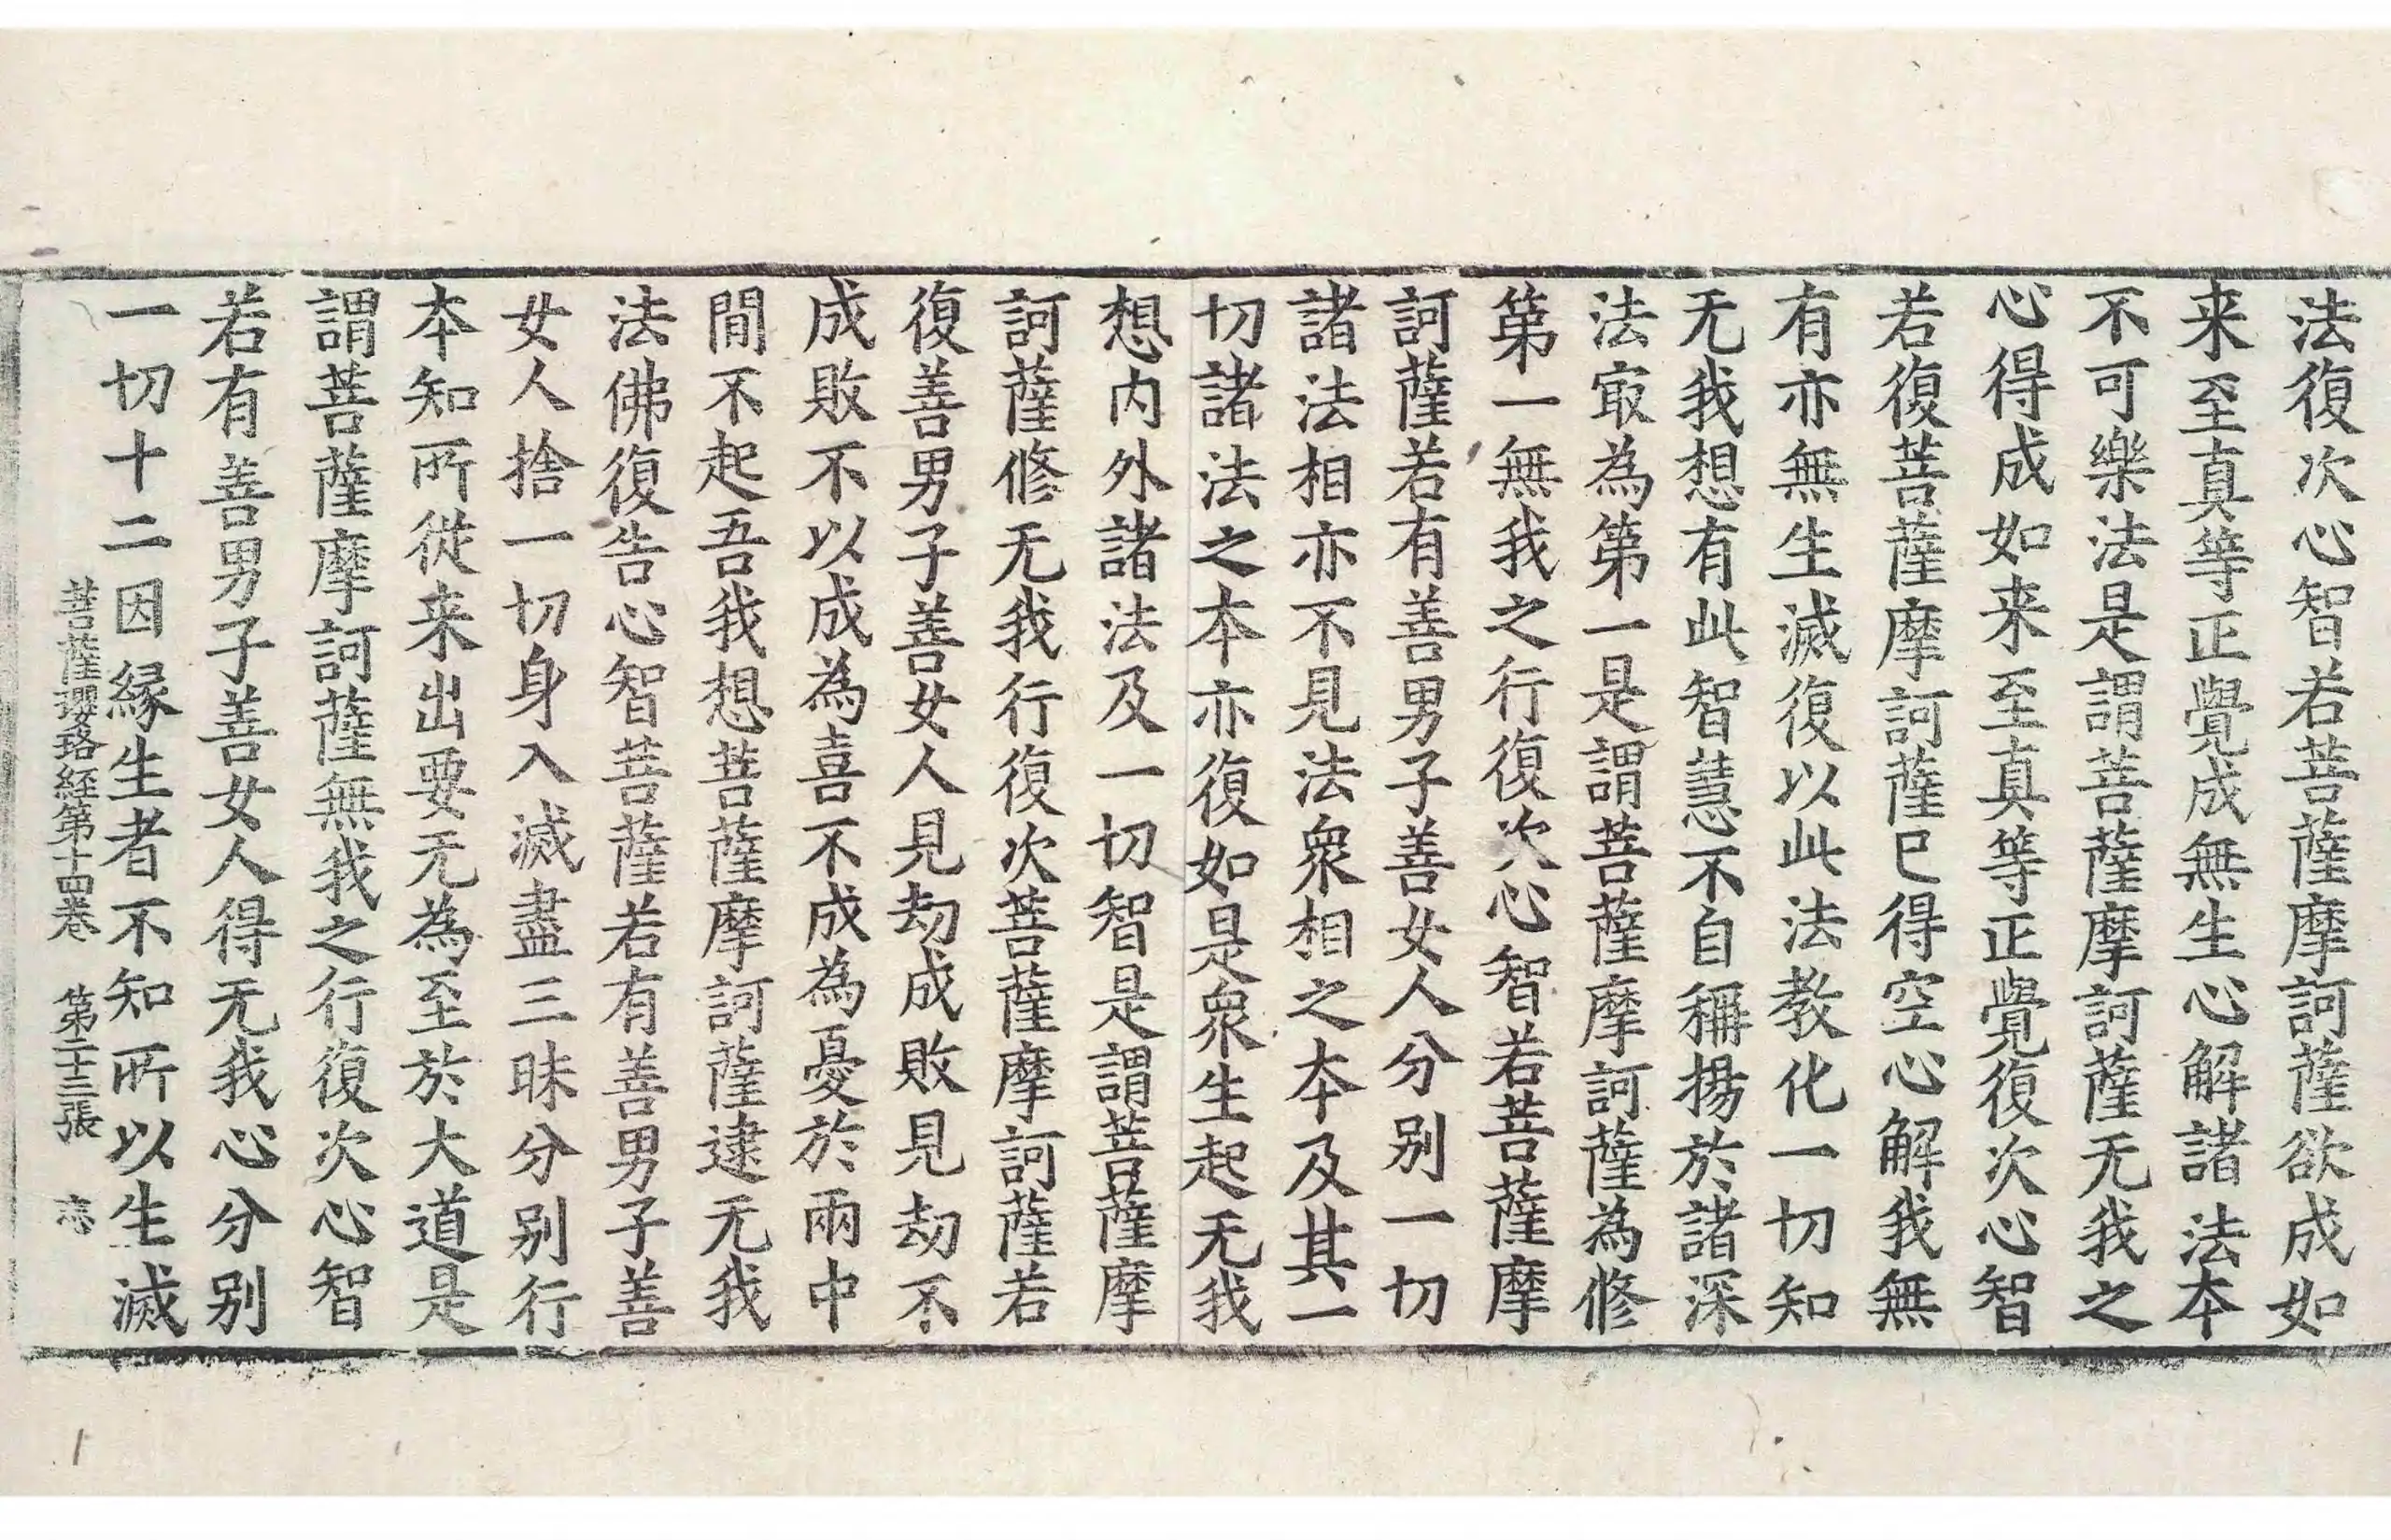 法復次心智若菩薩摩訶薩欲成如
来至真等正覺成無生心解諸法本
不可樂法是謂菩薩摩訶薩无我之
心得成如来至真等正覺復次心智
若復菩薩摩訶薩已得空心解我無
有亦無生滅復以此法教化一切知
无我想有此智慧不自稱揚於諸深
法㝡為第一是謂菩薩摩訶薩為修
第一無我之行復次心智若菩薩摩
訶薩若有善男子善女人分別一切
諸法相亦不見法眾相之本及其一
切諸法之本亦復如是眾生起无我
想内外諸法及一切智是謂菩薩摩
訶薩修无我行復次菩薩摩訶薩若
復善男子善女人見劫成敗見劫不
成敗不以成為喜不成為憂於兩中
間不起吾我想菩薩摩訶薩逮无我
法佛復告心智菩薩若有善男子善
女人捨一切身入滅盡三昧分別行
本知所從来出要无為至於大道是
謂菩薩摩訶薩無我之行復次心智
若有善男子善女人得无我心分別
一切十二因緣生者不知所以生滅
菩薩瓔珞經第十四卷 第二十三張 志